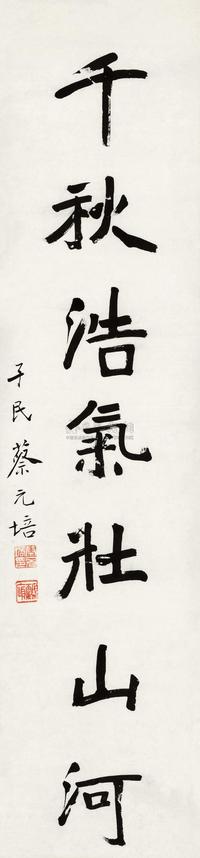 千秋浩氣壯山河
孑民蔡元培